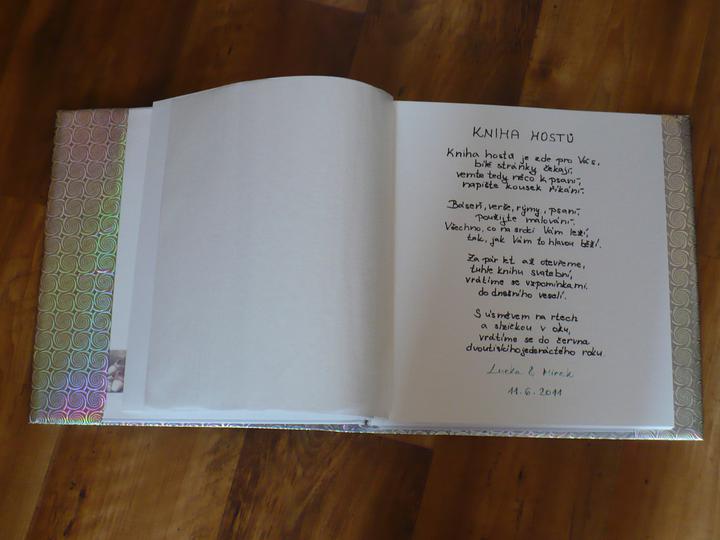 KNIHA HOSTŮ
Kniha hostů je zde pro Vás,
bílé stránky čekají,
vemte tedy něco k psaní,
napište kousek říkání.
Báseň, verše, rýmy, psaní,
použijte malování.
Všechno, co na srdci Vám leží,
tak, jak Vám to hlavou běží.
Za pár let až otevřeme,
tuhle knihu svatební,
vrátíme se vzpomínkami
do dnešního veselí.
S úsměvem na rtech
a slzičkou v oku,
vrátíme se do června
dvoutisíhojedenáctého roku.
Lucka & Mirek
11.6.2011